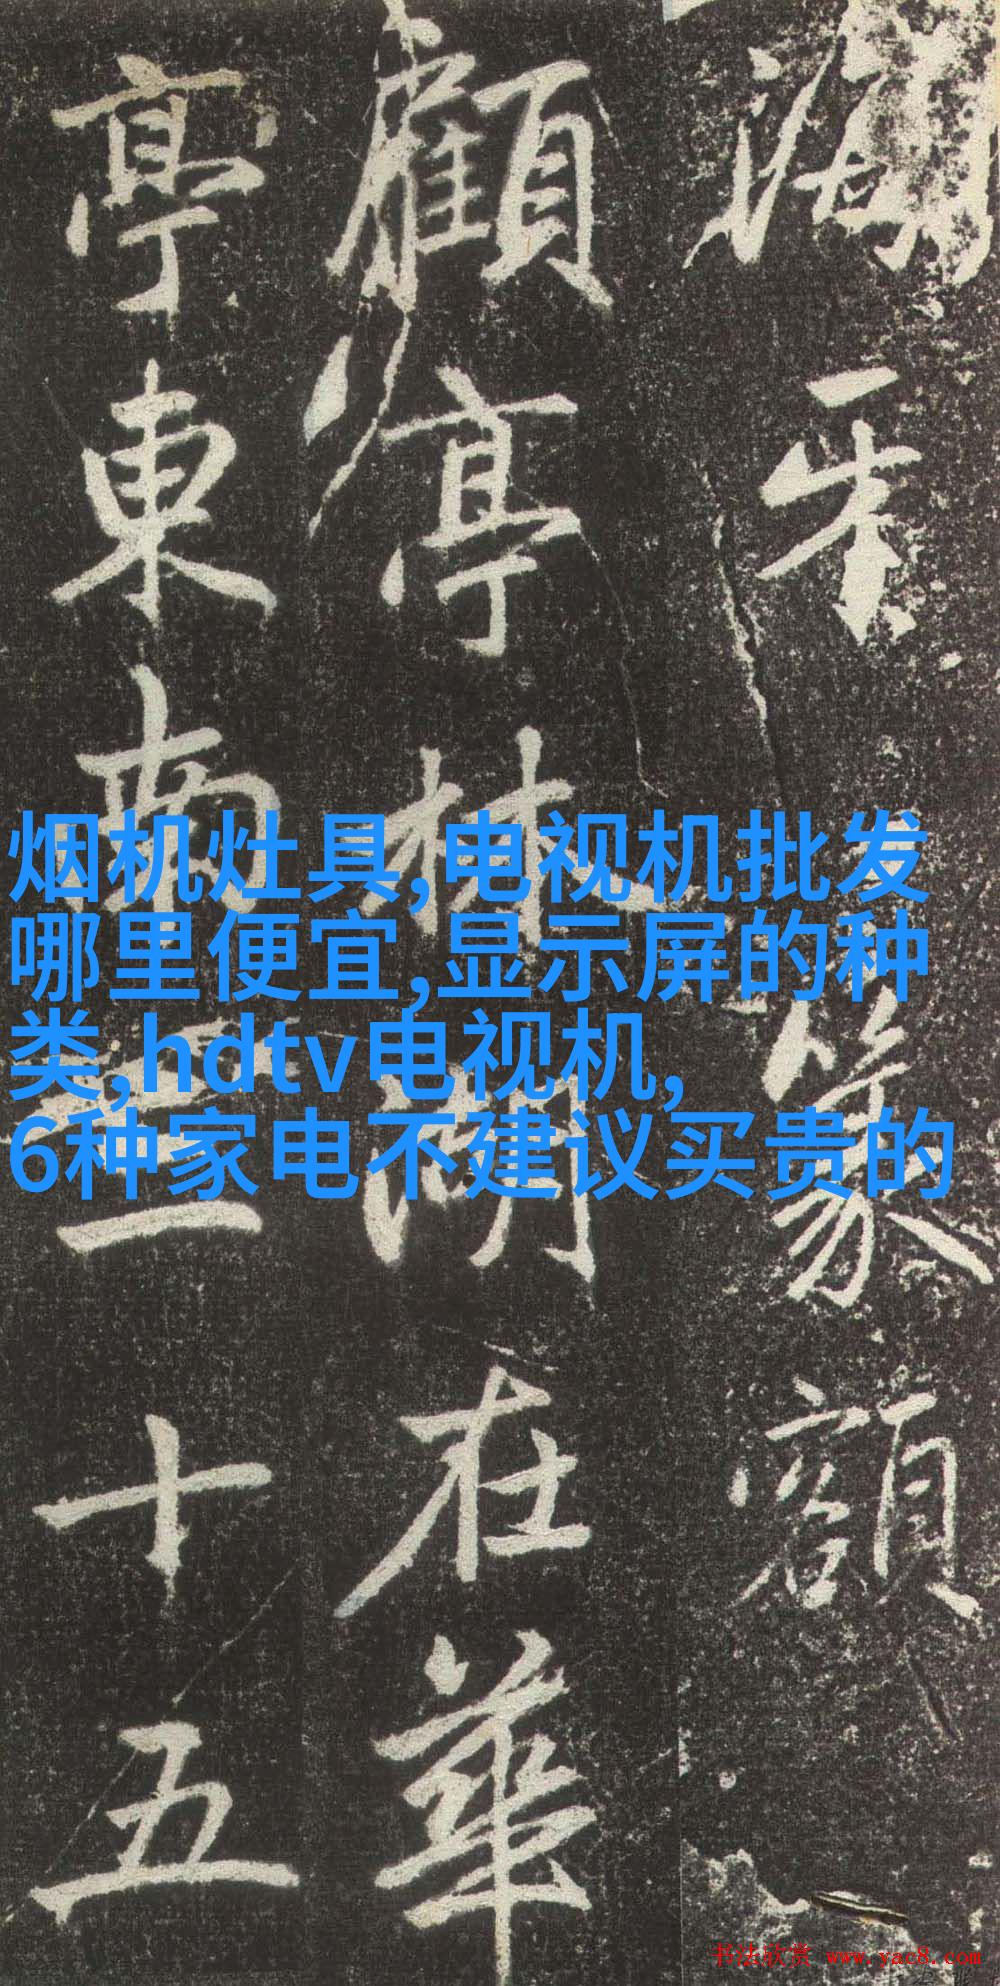 篆額
顧亭林湖在華
亭東南三十五
烟机灶具,电视机批发
哪里便宜,显示屏的种
类,hdtv电视机,
6种家电不建议买贵的
书法欣赏 www.yac8.com